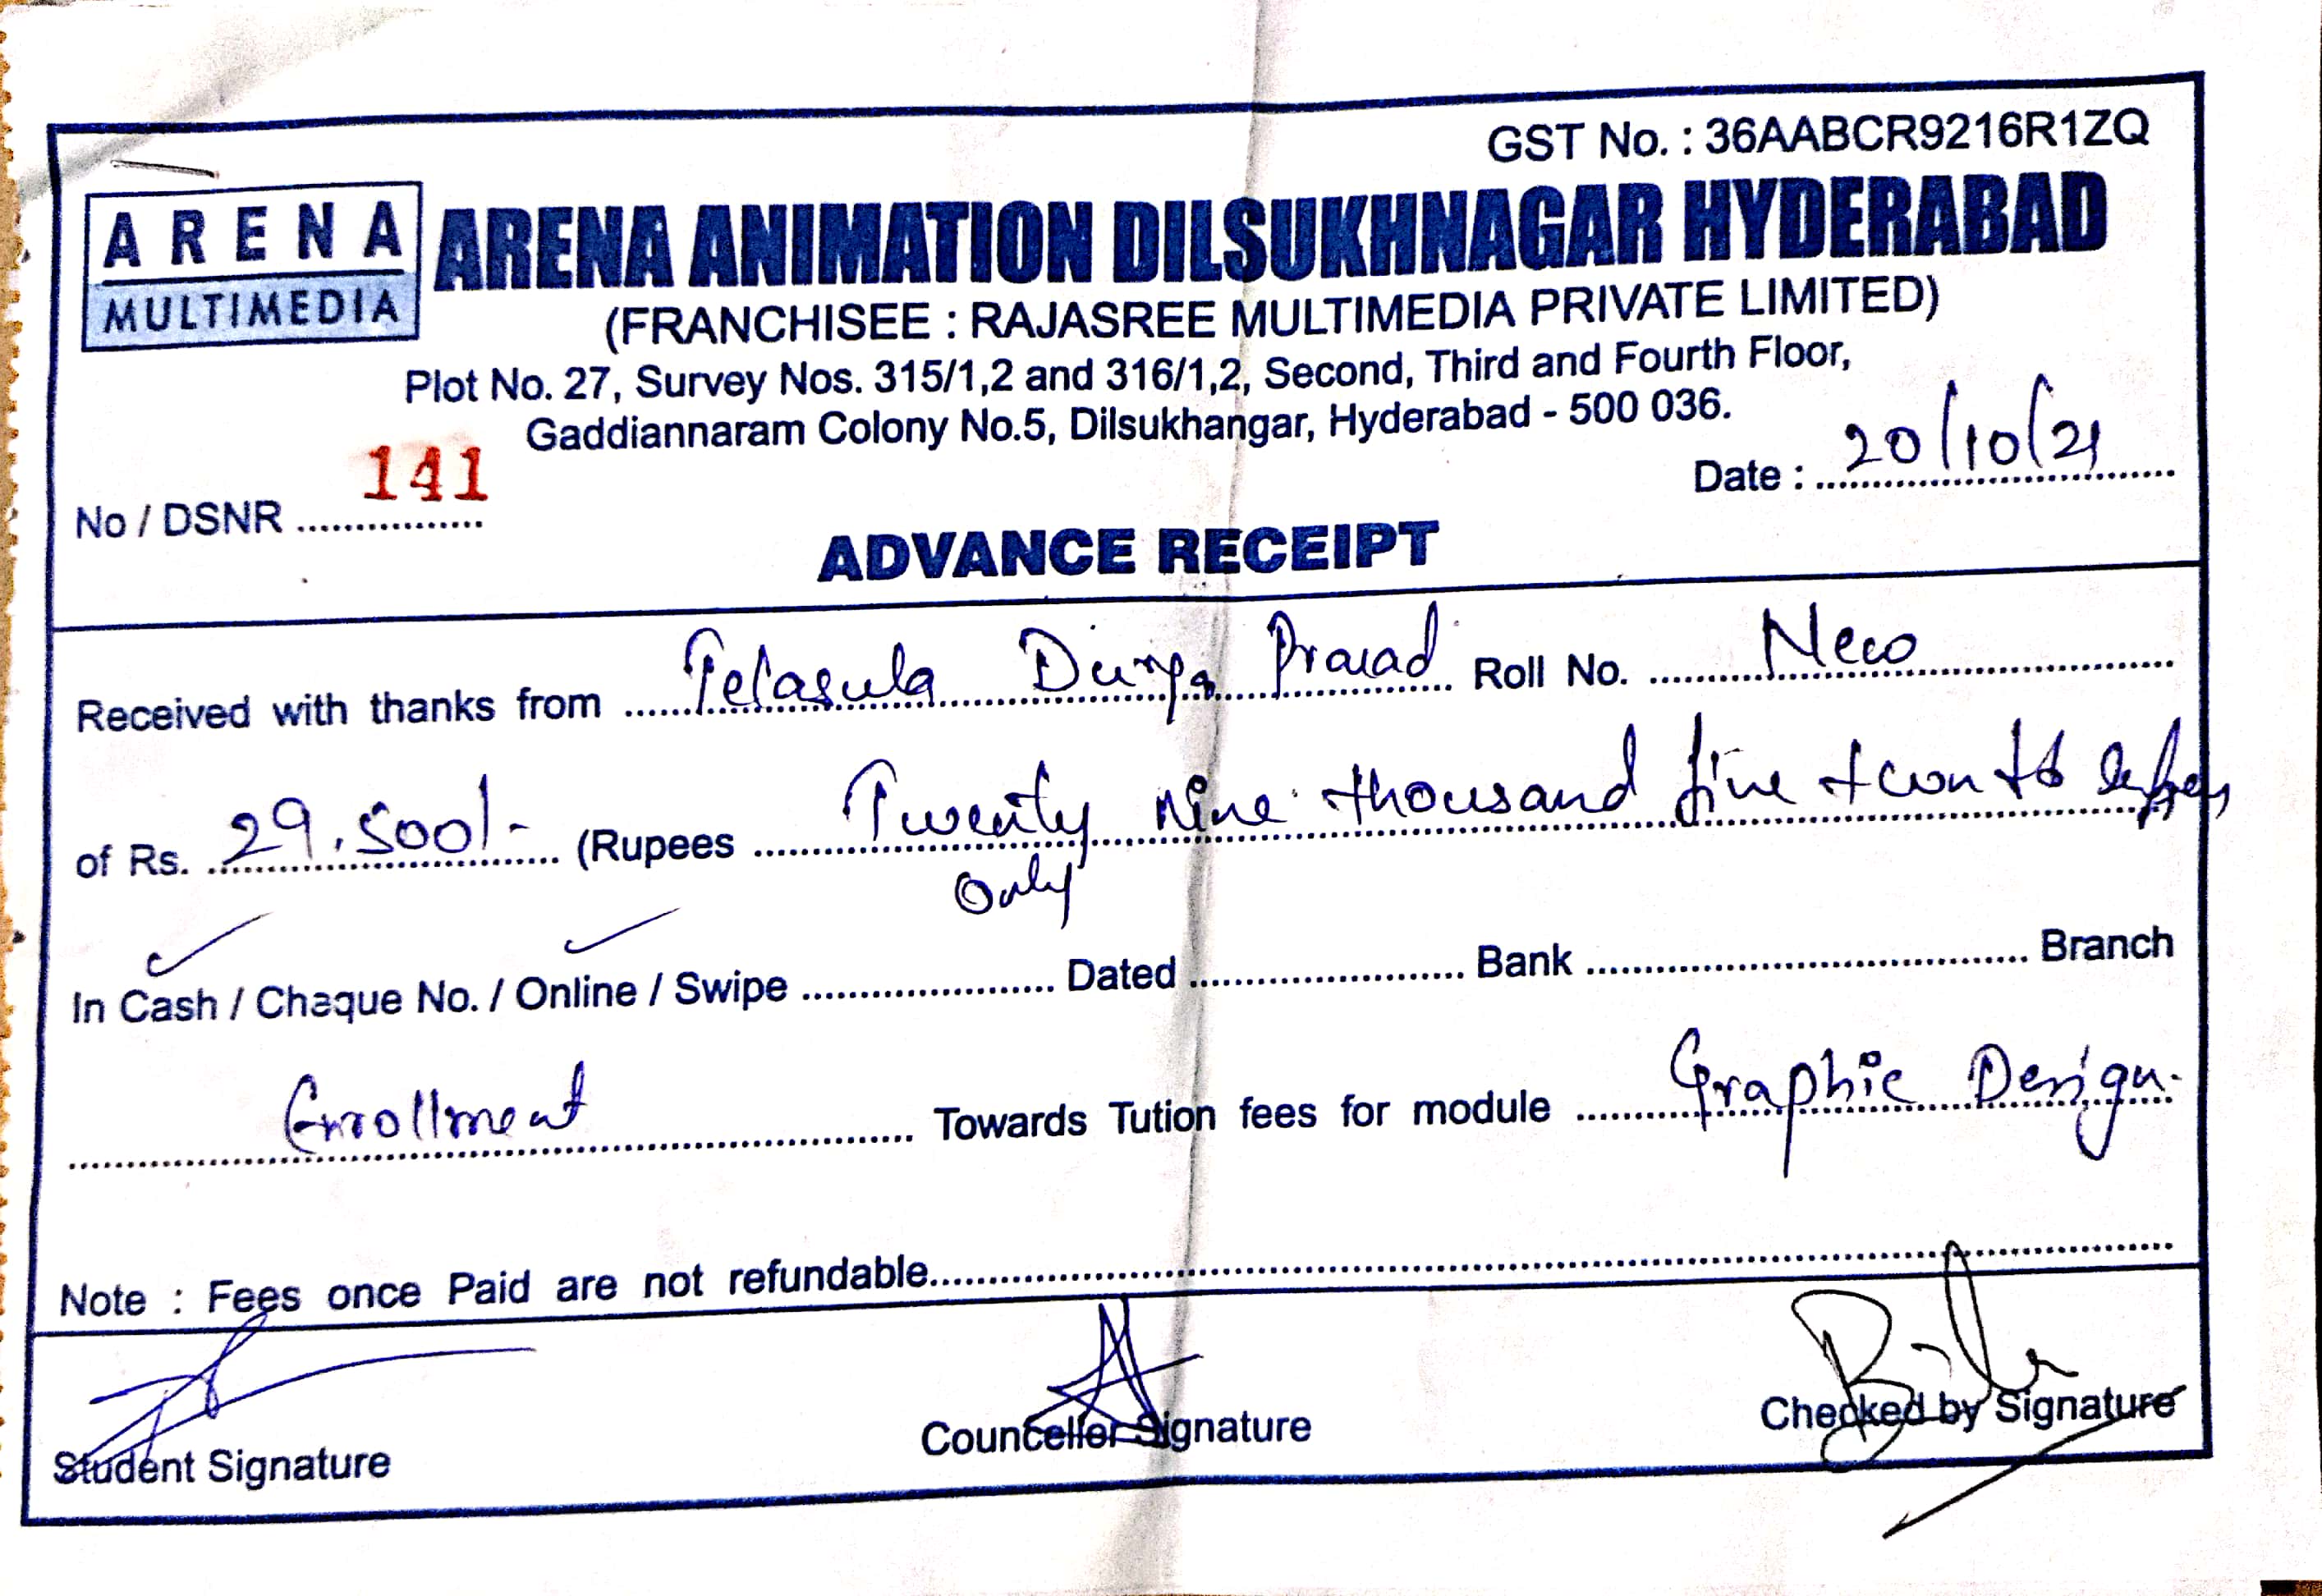 GST No. : 36AABCR9216R1ZQ
ARENA
MULTIMEDIA
ARENA ANIMATION DILSUKHNAGAR HYDERABAD
(FRANCHISEE : RAJASREE MULTIMEDIA PRIVATE LIMITED)
Plot No. 27, Survey Nos. 315/1,2 and 316/1,2, Second, Third and Fourth Floor,
Gaddiannaram Colony No.5, Dilsukhangar, Hyderabad - 500 036.
No / DSNR 141 Date : 20/10/21
ADVANCE RECEIPT
Received with thanks from Durga Prasad Roll No. New
of Rs. 29,500/- (Rupees Twenty Nine thousand five
Only
In Cash / Chaque No. / Online / Swipe Dated Bank Branch
Enrollment Towards Tution fees for module Graphic Design.
Note : Fees once Paid are not refundable
Student Signature Counceller Signature Checked by Signature